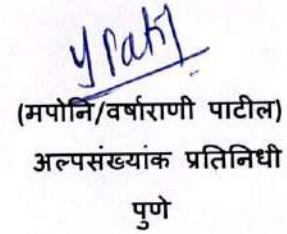 (मपोनि/वर्षाराणी पाटील)
अल्पसंख्यांक प्रतिनिधी
पुणे